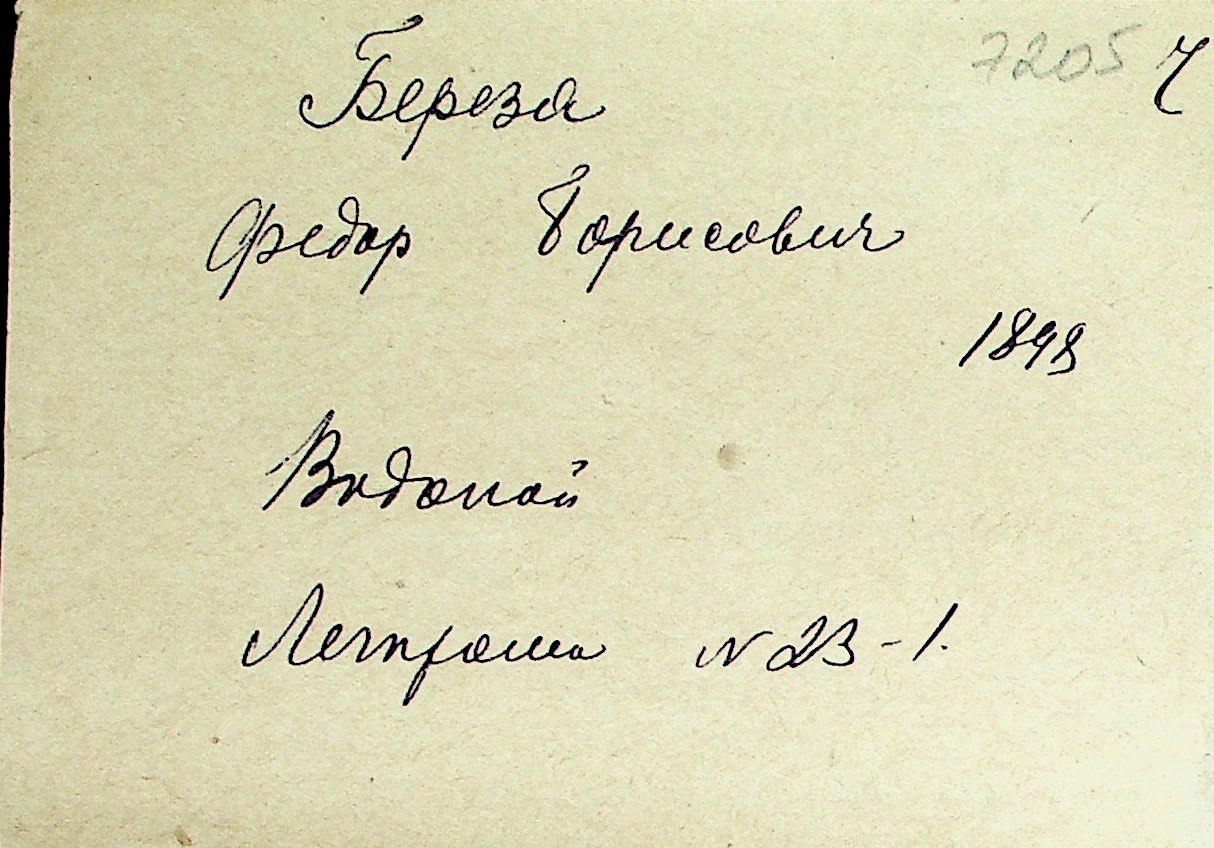 7205 Ч
Береза
Федор Борисович
1898
Водопой
Легпрома N 23-1.